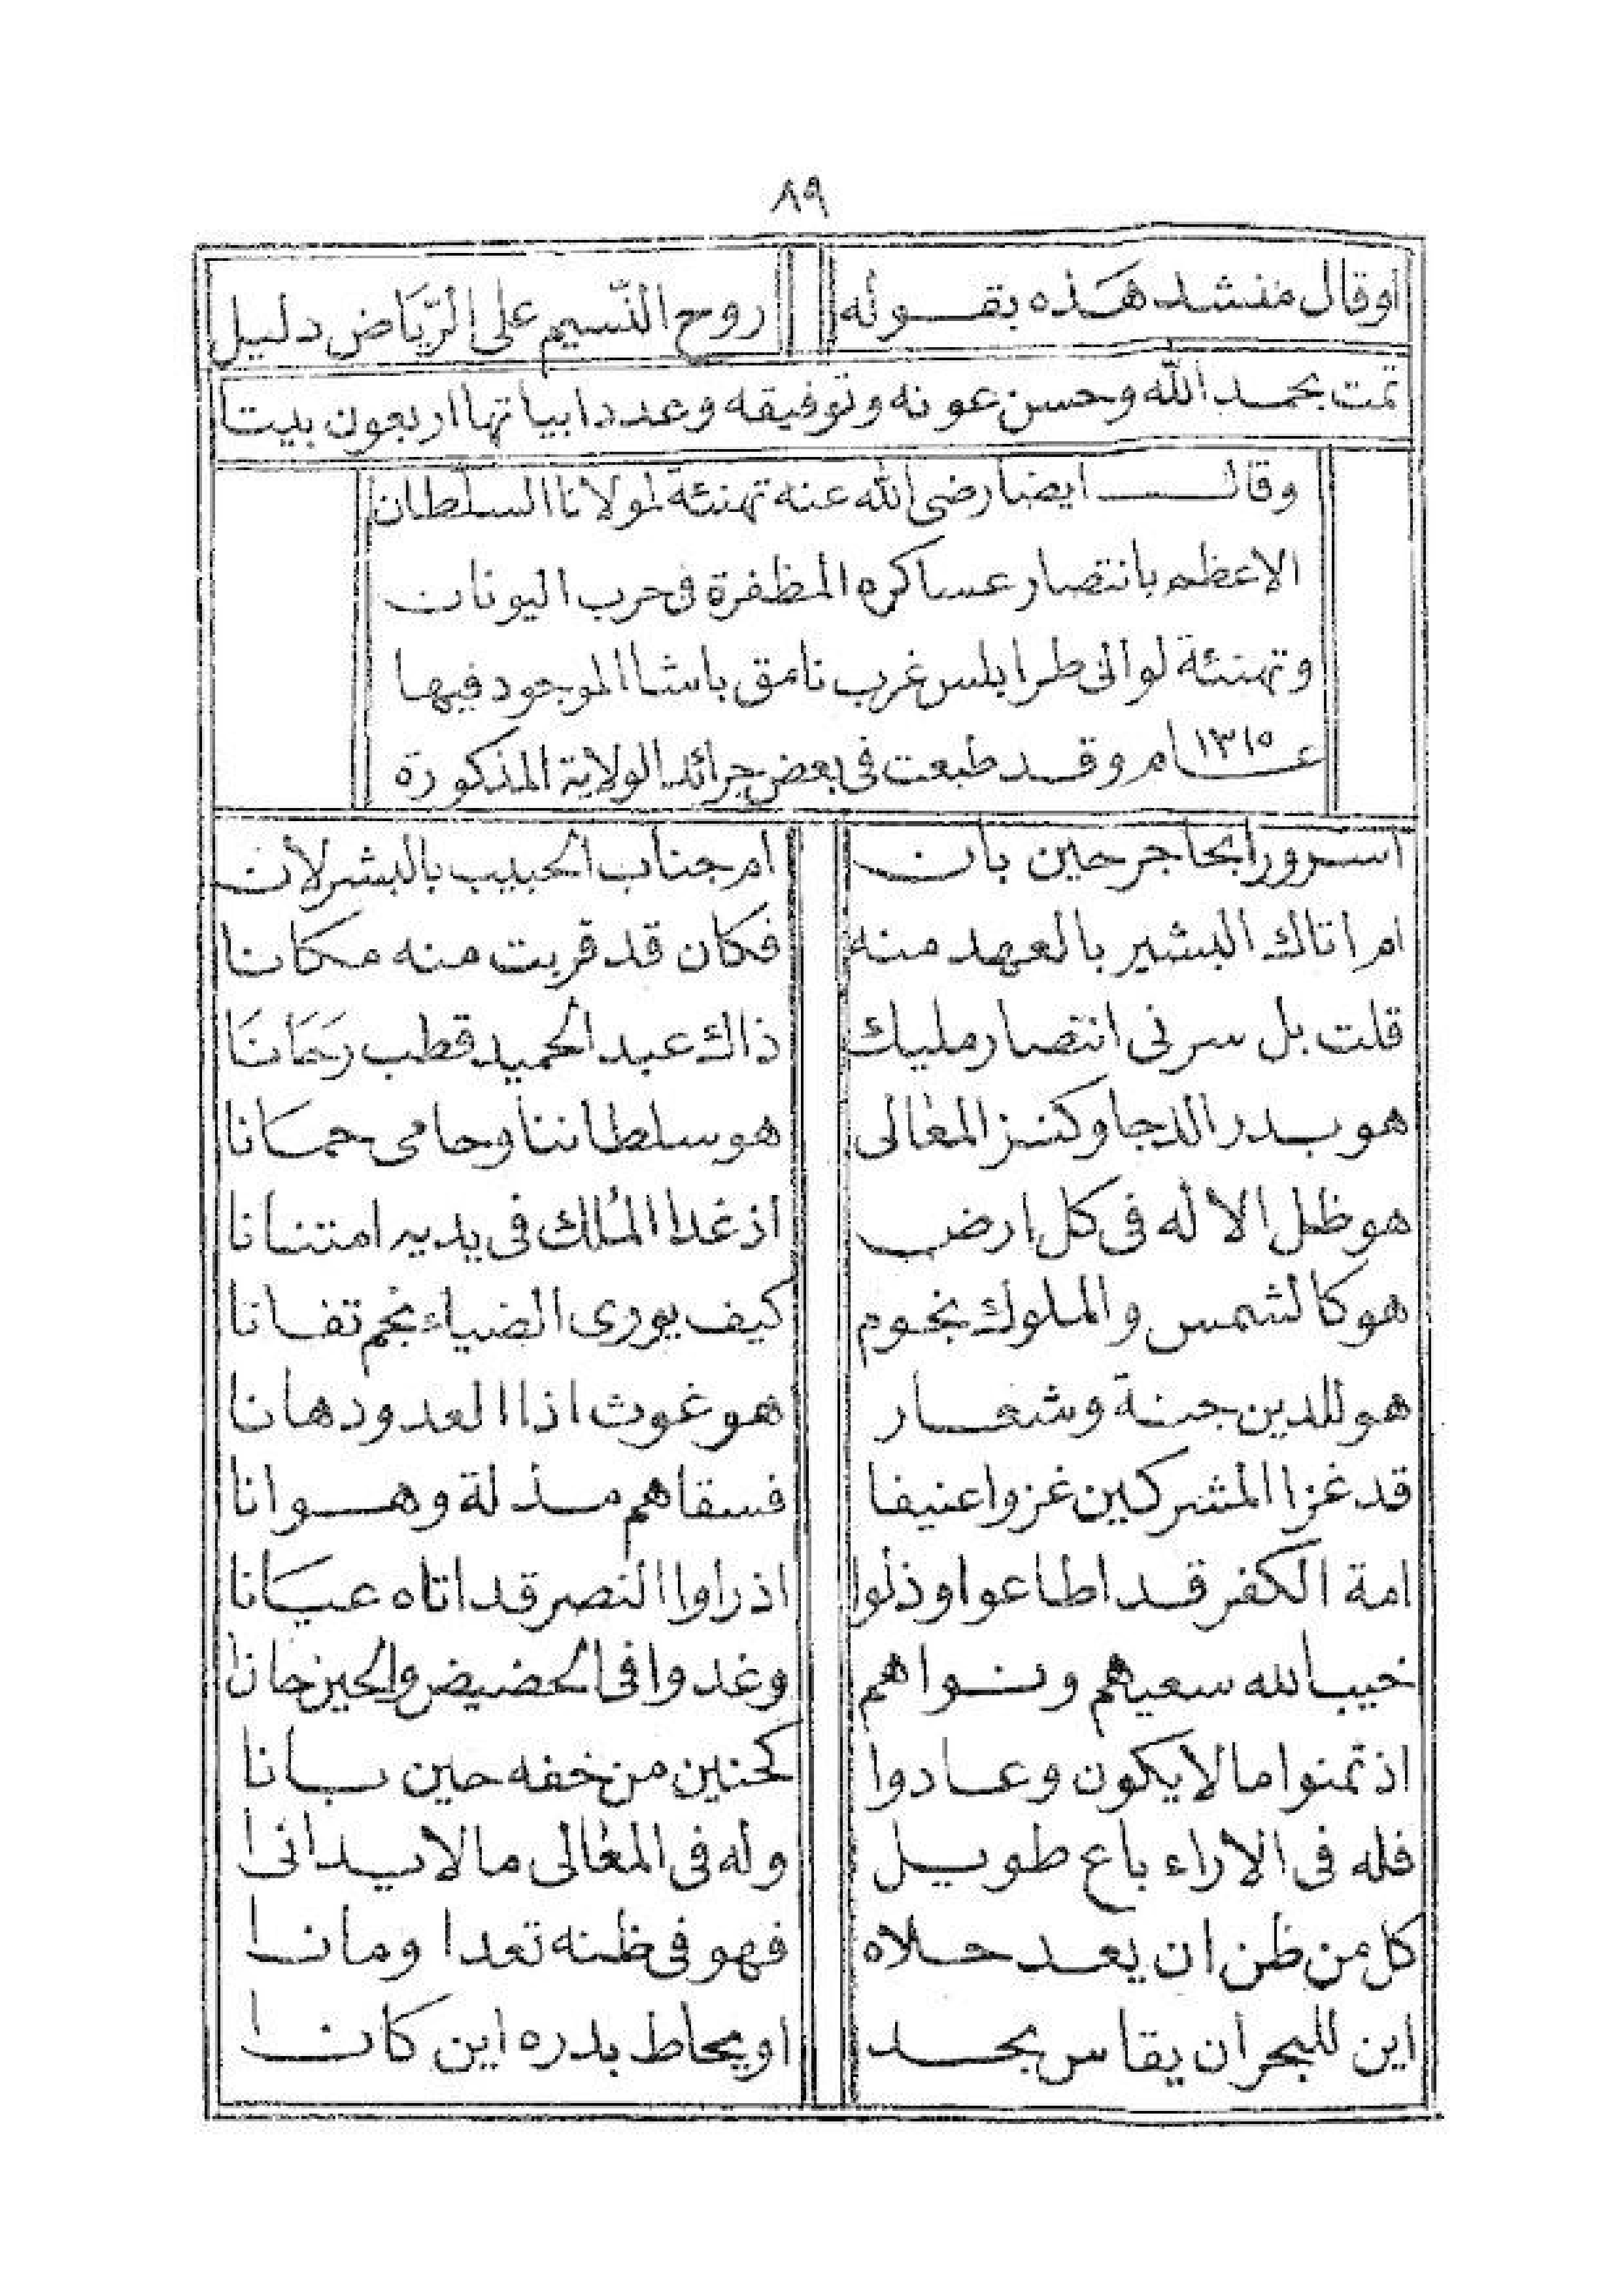 ٨٩
اوقال منشد هَذه بقـوله روح النّسيم على الرّيَاض دليل
تمت بحمد الله وحسن عونه وتوفيقه وعدد ابياتها اربعون بيتا
وقال ايضا رضى الله عنه تهنئة لمولانا السلطان
الاعظم بانتصار عساكره المظفرة فى حرب اليونان
وتهنئة لوالى طرابلس غرب نامق باشا الموجود فيها
عام ١٣١٥ وقد طبعت فى بعض جرائد الولاية المذكورة
اسرورا بحاجر حين بان ام جناب الحبيب بالبشر لان
ام اتاك البشير بالعهد منه فكان قد قربت منه مكانا
قلت بل سرنى انتصار مليك ذاك عبد الحميد قطب رَحَانَا
هو بدر الدجا وكنز المعالى هو سلطاننا وحامى حمَانا
هو ظل الاله فى كل ارض اذ غدا المُلك فى يديه امتنانا
هو كالشمس والملوك نجوم كيف يورى الضياء نجم تفانا
هو للدين جنة وشعار هو غوث اذا العدو دهانا
قد غزا المشركين غزوا عنيفا فسقاهم مذلة وهوانا
امة الكفر قد اطاعوا وذلوا اذ راوا النصر قد اتاه عيَانا
خيب الله سعيهم ونواهم وغدوا فى الحضيض والحين حانا
اذ تمنوا مالا يكون وعادوا كحنين من خفه حين بانا
فله فى الاراء باع طويل وله فى المعالى مالا يدانى
كل من ظن ان يعد حلاه فهو فى ظنه تعدا ومانا
اين للبحر أن يقاس بحد او يحاط بدره اين كانا